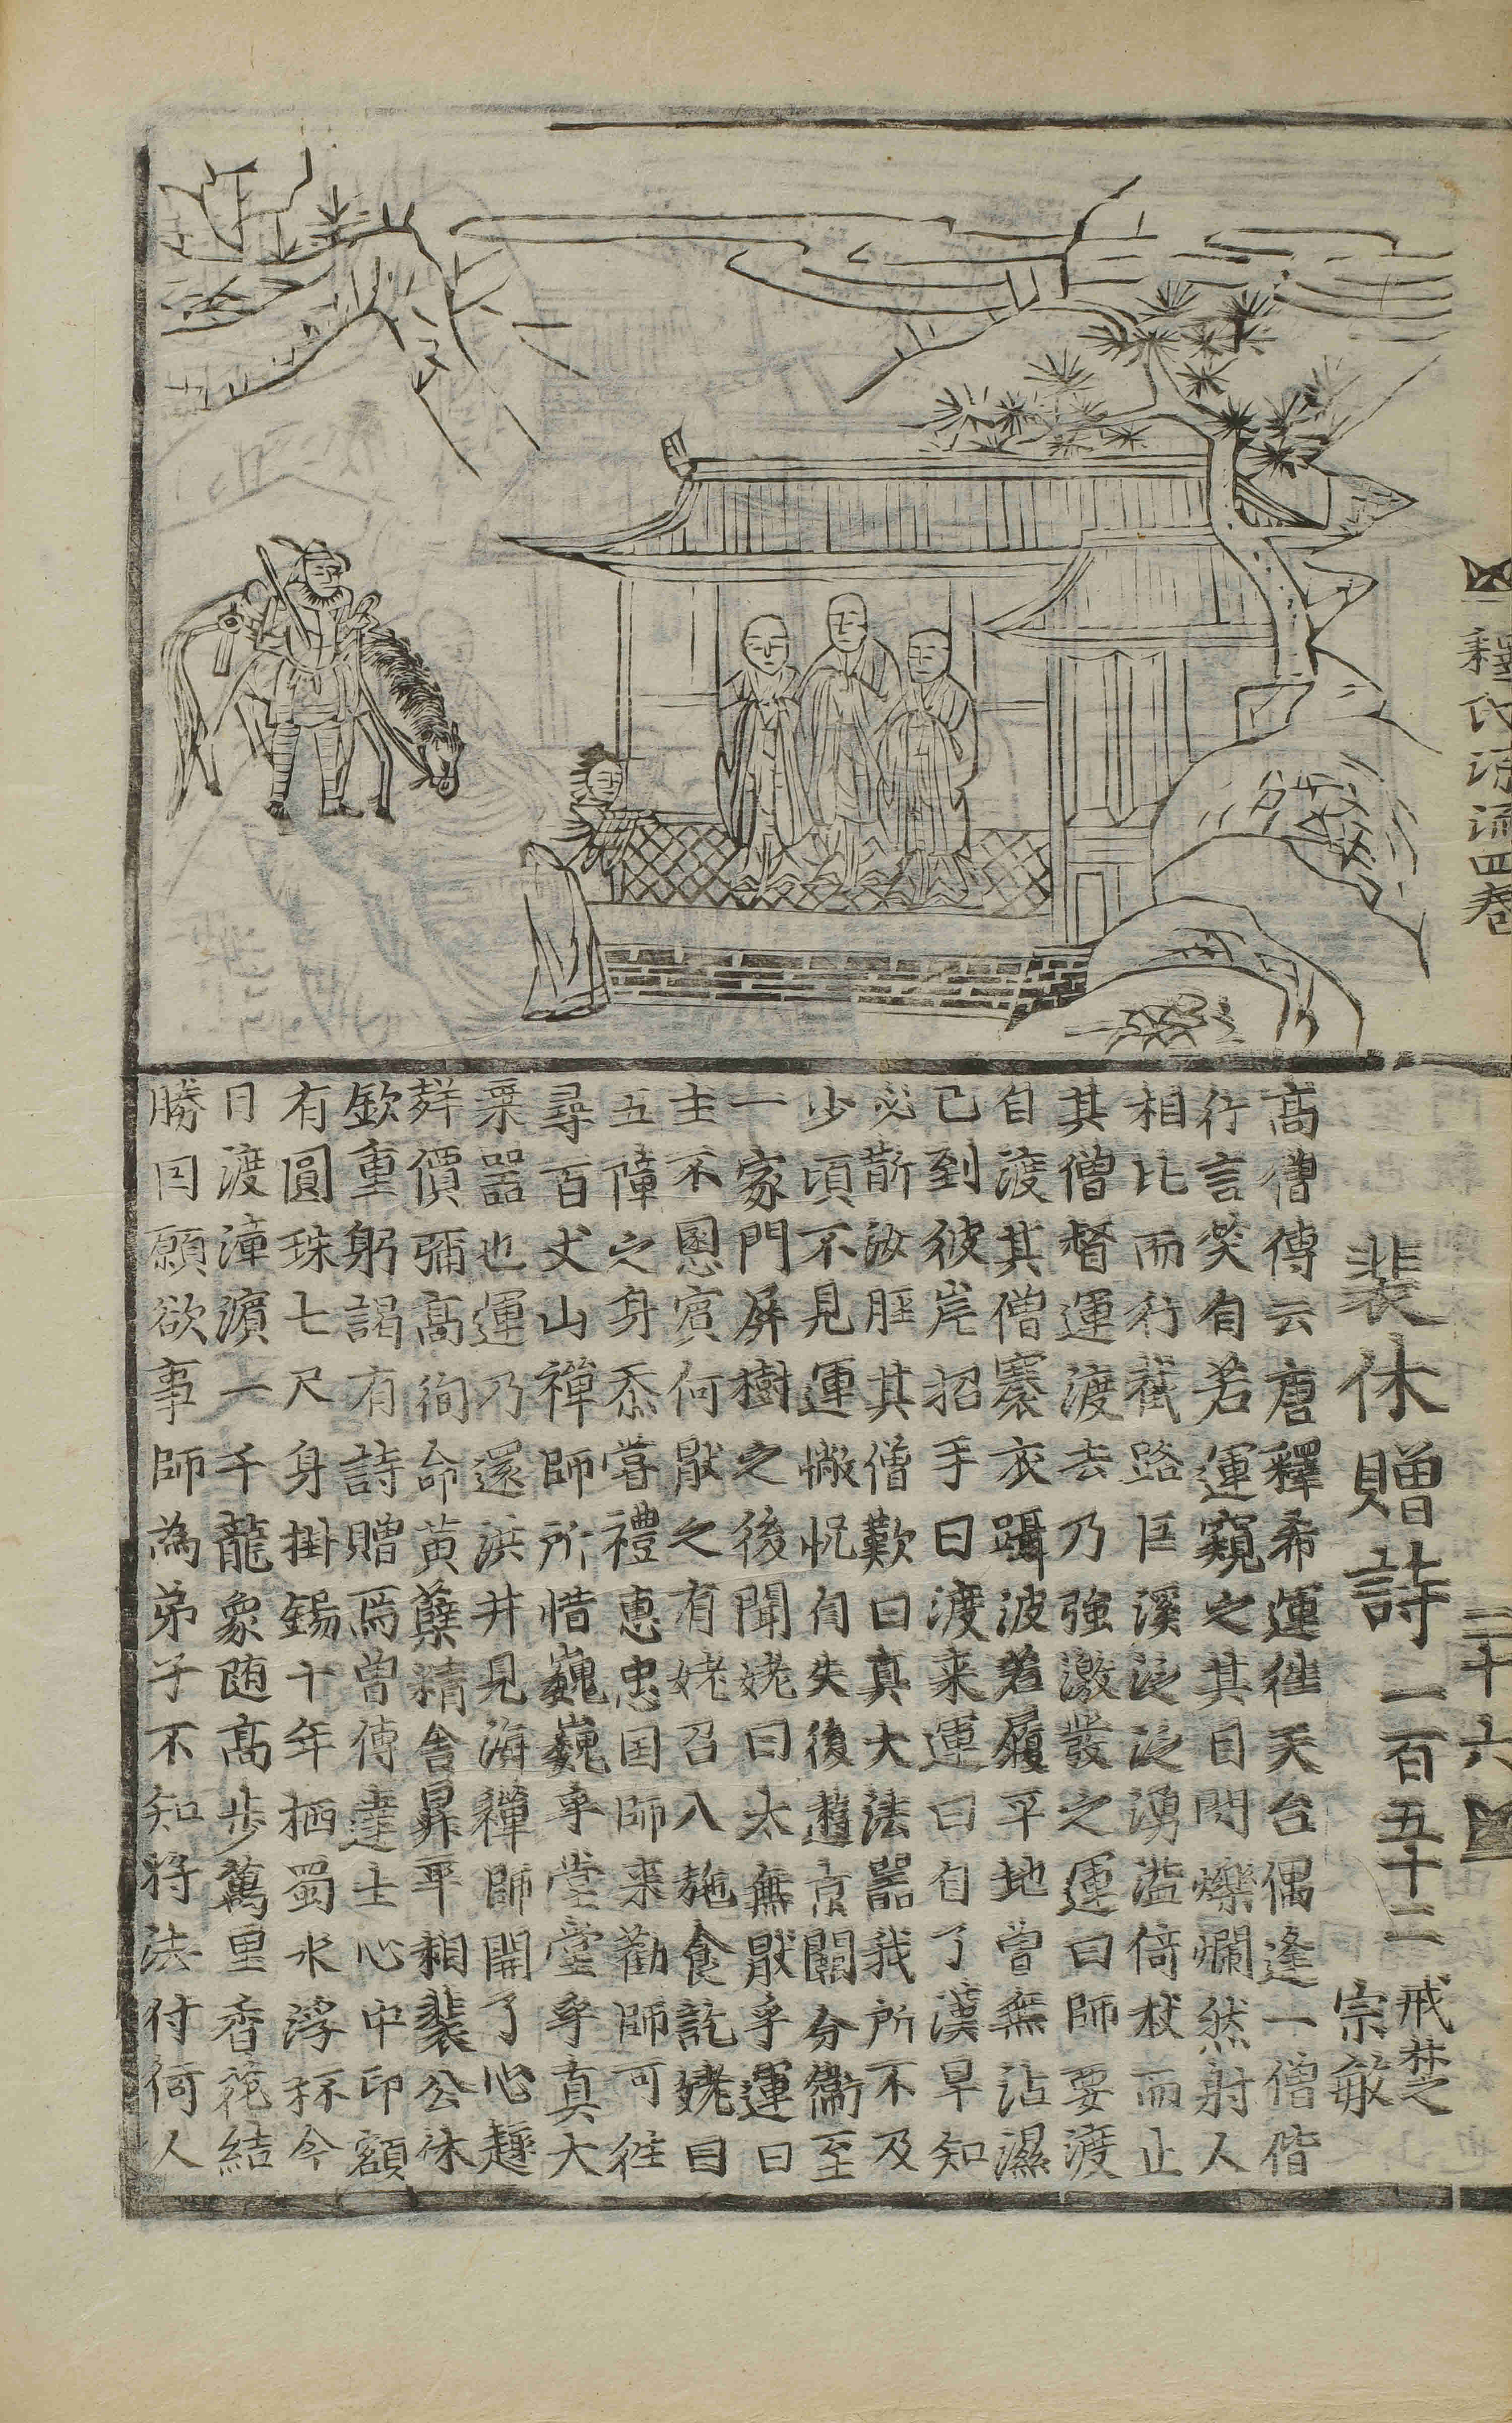 釋氏源流四卷
三十六
裴休贈詩 一百五十二
戒楚
宗敏
髙僧傳云唐釋希運徃天台偶逢一僧偕
行言笑自若運窺之其目閃爍爛然射人
相比而行截路巨溪泛泛湧溢倚杖而止
其僧督運渡去乃強激發之運曰師要渡
自渡其僧褰衣躡波若履平地曾無沾濕
已到彼岸招手曰渡来運曰自了漢早知
必斮汝脛其僧歎曰真大法噐我所不及
少頃不見運惝怳自失後遊京闕分衞至
一家門屏樹之後聞姥曰太無猒乎運曰
主不慁賓何猒之有姥召入施食訖姥曰
五障之身忝嘗禮惠忠国師来勸師可徃
尋百丈山禪師所惜巍巍乎堂堂乎真大
乗噐也運乃還洪井見海禪師開了心趣
聲價彌髙徇命黄蘗精舍昇平相裴公休
欽重躬謁有詩贈焉曽傳達士心中印額
有圓珠七尺身掛錫十年栖蜀水浮杯今
日渡漳濵一千龍象随髙步萬里香花結
勝因願欲事師為弟子不知将法付何人